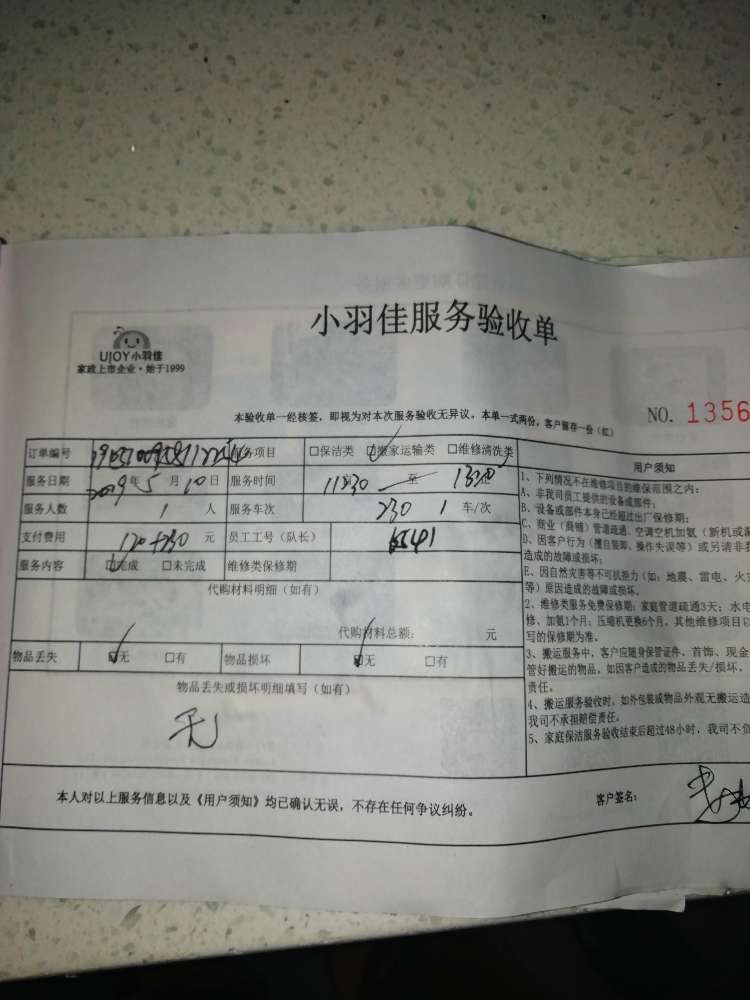 小羽佳服务验收单
UJOY小羽佳
家政上市企业·始于1999
本验收单一经核签，即视为对本次服务验收无异议。本单一式两份，客户留存一份（红）
NO. 1356
订单编号 务项目 □保洁类 □搬家运输类 □维修清洗类
服务日期 2019年5月10日 服务时间 至
服务人数 1 人 服务车次 230 1 车/次
支付费用 120+230 元 员工工号（队长）
服务内容 □完成 □未完成 维修类保修期
代购材料明细（如有）
代购材料总额： 元
物品丢失 □无 □有 物品损坏 □无 □有
物品丢失或损坏明细填写（如有）
无
用户须知
1、下列情况不在维修项目的维保范围之内：
A、非我司员工提供的设备或部件；
B、设备或部件本身已经超过出厂保修期；
C、商业（商铺）管道疏通、空调空机加氨（新机或漏
D、因客户行为（擅自装卸、操作失误等）或另请非我
造成的故障或损坏；
E、因自然灾害等不可抗拒力（如：地震、雷电、火灾
等）原因造成的故障或损坏。
2、维修类服务免费保修期：家庭管道疏通3天；水电
修、加氨1个月；压缩机更换6个月。其他维修项目以
写的保修期为准。
3、搬运服务中，客户应随身保管证件、首饰、现金
管好搬运的物品，如因客户造成的物品丢失/损坏，
责任。
4、搬运服务验收时，如外包装或物品外观无搬运造
我司不承担赔偿责任。
5、家庭保洁服务验收结束后超过48小时，我司不负
本人对以上服务信息以及《用户须知》均已确认无误，不存在任何争议纠纷。
客户签名：